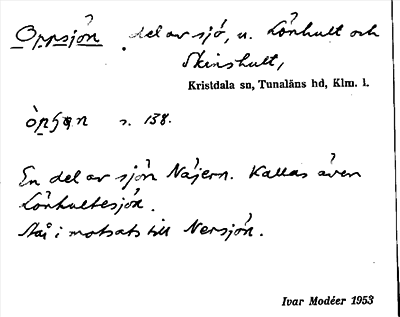 Oppsjön del av sjö, u. Lönhult och
Skinshult,
Kristdala sn, Tunaläns hd, Klm. l.
s. 138.
En del av sjön Näjern. Kallas även
Lönhultesjön.
Står i motsats till Nersjön.
Ivar Modéer 1953